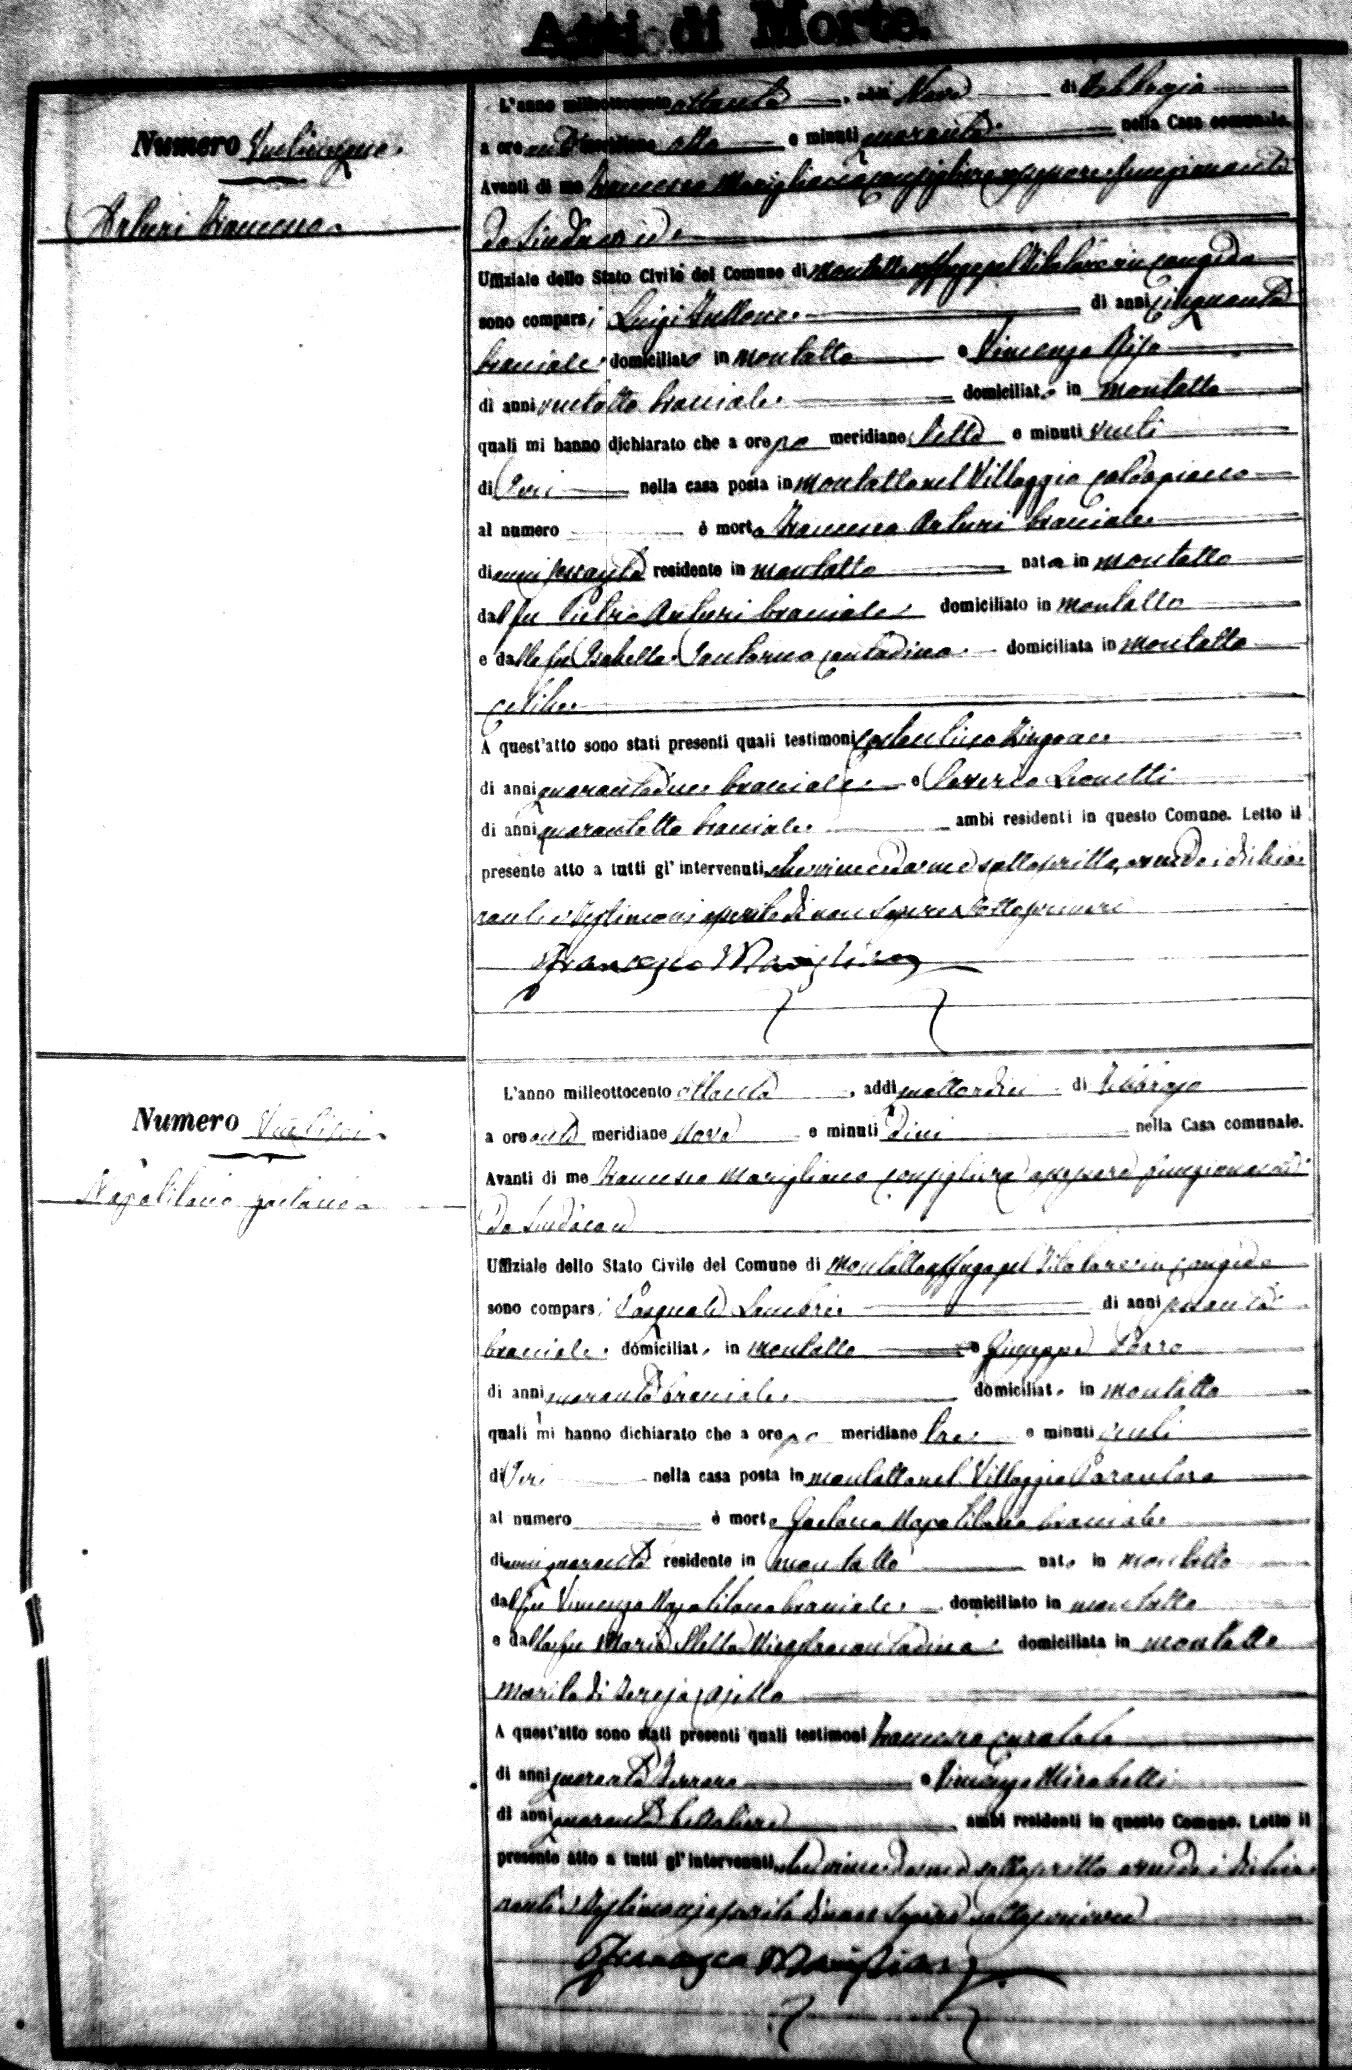 Atti di Morte.
Numero Venticinque.
Arturi Francesco
L'anno milleottocento ottanta, addì Nove di Febbrajo
a ore anti meridiane otto e minuti quaranta nella Casa comunale.
Avanti di me Francesco Marigliano Consigliere assessore funzionante
da Sindaco ed
Uffiziale dello Stato Civile del Comune di Montalto Uffugo pel titolare in congedo
sono comparsi Luigi di anni cinquanta
bracciale domiciliato in Montalto e Vincenzo
di anni ventotto bracciale domiciliato in Montalto
quali mi hanno dichiarato che a ore po meridiane sette e minuti venti
di Jeri nella casa posta in Montalto nel Villaggio Caldopiano
al numero è morto Francesco Arturi bracciale
di anni sessanta residente in Montalto nato in Montalto
dal fu Pietro Arturi bracciale domiciliato in Montalto
e dalla fu Isabella Santoro contadina domiciliata in Montalto
celibe
A quest'atto sono stati presenti quali testimoni Costantino Zingone
di anni quarantadue bracciale e Saverio Leonetti
di anni quarantotto bracciale ambi residenti in questo Comune. Letto il
presente atto a tutti gl'intervenuti che viene da me sottoscritto, avendo i dichia
ranti e testimoni asserito di non sapere sottoscrivere
Francesco Marigliano
Numero Ventisei.
Napolitano Gaetano
L'anno milleottocento ottanta, addì quattordici di Febbrajo
a ore anti meridiane nove e minuti dieci nella Casa comunale.
Avanti di me Francesco Marigliano Consigliere assessore funzionante
da Sindaco ed
Uffiziale dello Stato Civile del Comune di Montalto Uffugo pel titolare in congedo
sono comparsi Pasquale di anni
bracciale domiciliato in Montalto e Giuseppe Porro
di anni quaranta bracciale domiciliato in Montalto
quali mi hanno dichiarato che a ore po meridiane tre e minuti venti
di Jeri nella casa posta in Montalto nel Villaggio Parantoro
al numero è morto Gaetano Napolitano bracciale
di anni quaranta residente in Montalto nato in Montalto
dal fu Vincenzo Napolitano bracciale domiciliato in Montalto
e dalla fu Maria Stella contadina domiciliata in Montalto
marito di Teresa
A quest'atto sono stati presenti quali testimoni Francesco Curatolo
di anni quaranta e Vincenzo Mirabelli
di anni quaranta bettoliere ambi residenti in questo Comune. Letto il
presente atto a tutti gl'intervenuti che viene da me sottoscritto avendo i dichia
ranti e testimoni asserito di non sapere sottoscrivere
Francesco Marigliano